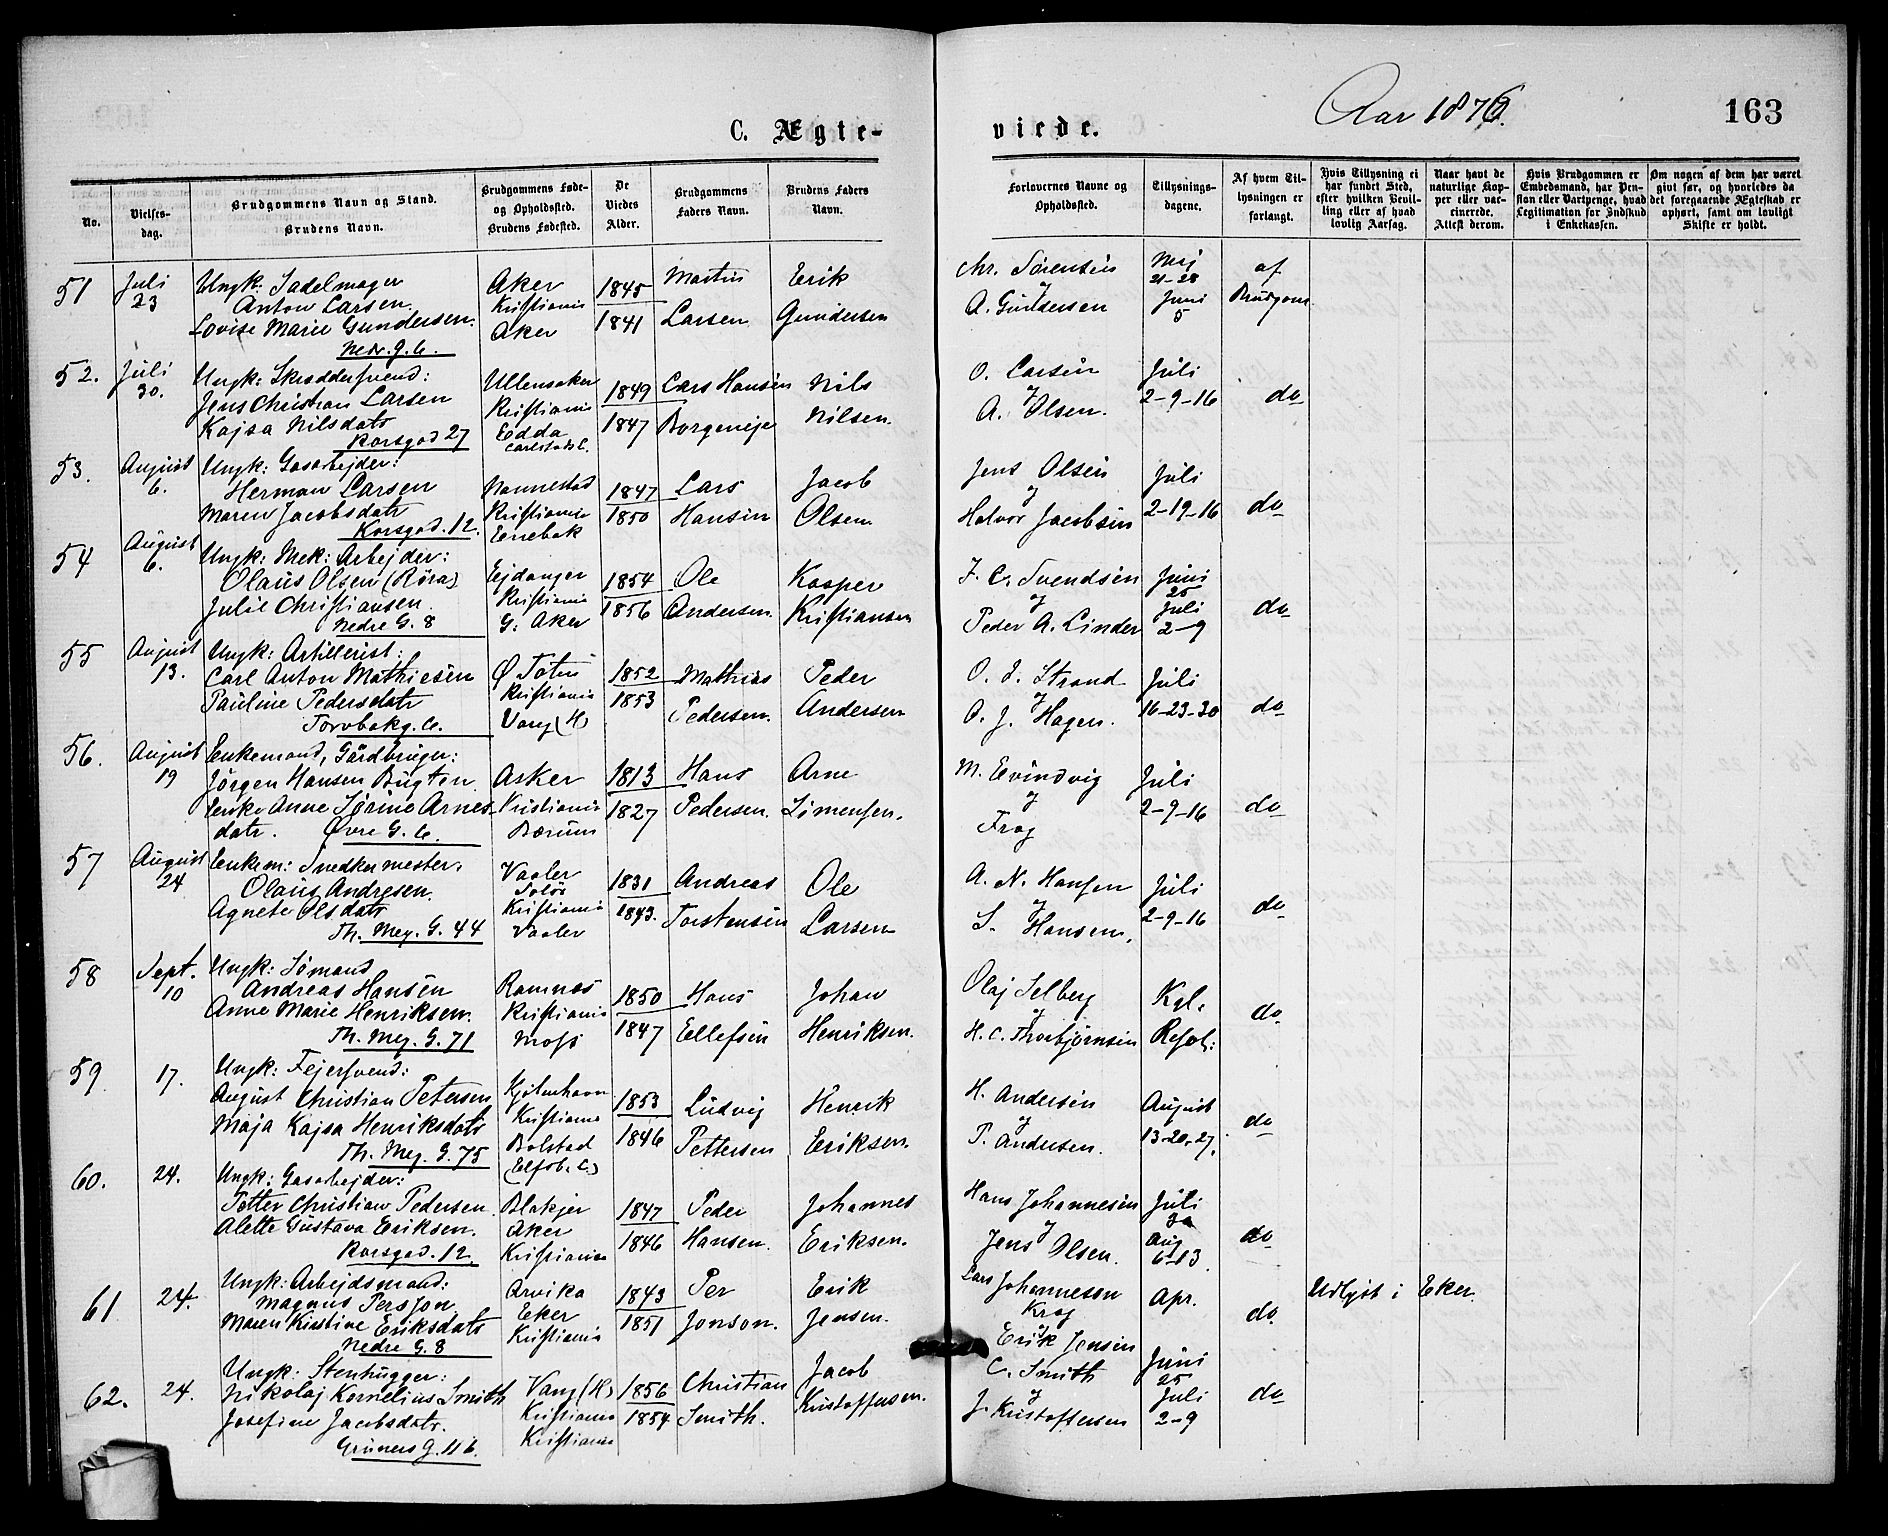 C. Ægte-
viede.
Aar 1876.
163
No.
Vielses-
dag.
Brudgommens Navn og Stand.
Brudens Navn.
Brudgommens Føde-
og Opholdssted.
Brudens Fødested.
De
Viedes
Alder.
Brudgommens
Faders Navn.
Brudens Faders
Navn.
Forlovernes Navne og
Opholdssted.
Tillysnings-
dagene.
Af hvem Til-
lysningen er
forlangt.
Hvis Tillysning ei
har fundet Sted,
efter hvilken Bevil-
ling eller af hvad
lovlig Aarsag.
Naar havt de
naturlige Kop-
per eller vac-
cinerede.
Attest derom.
Hvis Brudgommen er
Embedsmand, har Pen-
sion eller Vartpenge, hvad
Legitimation for Indskud
i Enkekassen.
Om nogen af dem har været
givt før, og hvorledes da
det foregaaende Ægteskab er
ophørt, samt om lovligt
Skifte er holdt.
51 Juli 23
Ungk: Sadelmager
Anton Larsen
Lovise Marie Gundersen.
Nedr. g. 6.
Aker
Kristiania
Aker
1845
1841
Martin
Larsen
Erik
Gundersen
Chr. Sørensen
og
A. Gundersen
Mej
21-28
Juni
5
af
Brudgom
52. Juli 30.
Ungk: Skrædersvend:
Jens Christian Larsen
Kajsa Nilsdatr
Korsgad 27
Ullensaker
Kristiania
Edda
Carlstads L.
1849
1847
Lars Hansen
Borgeneje
Nils
Nilsen.
O. Larsen
og
A. Olsen.
Juli
2-9-16
do
53. August 6.
Ungk: Gasarbejder:
Herman Larsen
Maren Jacobsdatr
Korsgad. 12.
Nannestad
Kristiania
Enebak
1847
1850
Lars
Hansen
Jacob
Olsen
Jens Olsen
og
Halvor Jacobsen
Juli
2-19-16
do
54 August 6.
Ungk: Mek: Arbejder:
Olaus Olsen (Röra)
Julie Christiansen.
Nedre G. 8
Ejdanger
Kristiania
G: Aker
1854
1856
Ole
Andersen.
Kasper
Kristiansen
J. C. Svendsen
og
Peder A. Linder
Juni
25
Juli
2-9
do
55 August 13.
Ungk: Artillerist:
Carl Anton Mathiesen
Pauline Pedersdatr
Torvbakg. 6.
Ø Toten
Kristiania
Vang (H)
1852
1853
Mathias
Pedersen.
Peder
Andersen
O. J. Strand
og
O. J. Hagen.
Juli
16-23-30
do
56. August 19
Enkemand, Gårdbruger:
Jörgen Hansen Bugten
Enke Anne Sørine Arnes-
datr. Øvre G. 6.
Asker
Kristiania
Bærum
1813
1827
Hans
Pedersen.
Arne
Simensen.
M. Evindvig
og
Frog
Juli
2-9-16
do
57 August 24
Enkem: Snedkermester.
Olaus Andresen.
Agnete Olsdatr
Th. Mey. G. 44
Vaaler
Solør
Kristiania
Vaaler
1831
1843.
Andreas
Torstensen
Ole
Larsen
A. N. Hansen
og
S. Hansen.
Juli
2-9-16
do
58 Sept. 10
Ungk: Sømand
Andreas Hansen
Anne Marie Henriksen.
Th. Mey. G. 71
Ramnæs
Kristiania
Moss
1850
1847
Hans
Ellefsen
Johan
Henriksen.
Olaj Selberg
og
H. C. Thorbjørnsen
Kgl.
Resol:
do
59. 17.
Ungk: Fejersvend:
August Christian Petersen
Maja Kajsa Henriksdatr
Th. Mey. G. 75
Kjøbenhavn
Kristiania
Bolstad
(Elfsb. L.)
1853
1846
Ludvig
Pettersen
Henrik
Eriksen.
H. Andersen
og
P. Andersen.
August
13-20-27.
do
60. 24.
Ungk: Gasarbejder:
Petter Christian Pedersen
Alette Gustava Eriksen.
Korsgad. 12.
Blakjer
Aker
Kristiania
1847
1846
Peder
Hansen.
Johannes
Eriksen.
Hans Johannesen
og
Jens Olsen.
Juli
30
Aug
6-13.
do
61 24.
Ungk: Arbejdsmand:
Magnus Persson
Maren Kirstine Eriksdatr
Nedre G. 8
Arvika
Eker
Kristiania
1843
1851
Per
Jonson.
Erik
Jensen.
Lars Johanneson
Krog
og
Erik Jensen
Apr.
do.
Udlyst i Eker.
62. 24.
Ungk: Stenhugger:
Nikolaj Kornelius Smith
Josefine Jacobsdatr.
Grüners g. 116.
Vang (H)
Kristiania
Kristiania
1856
1854
Christian
Smith.
Jacob
Kristoffersen.
C. Smith
og
J. Kristoffersen
Juni
25
Juli
2-9
do